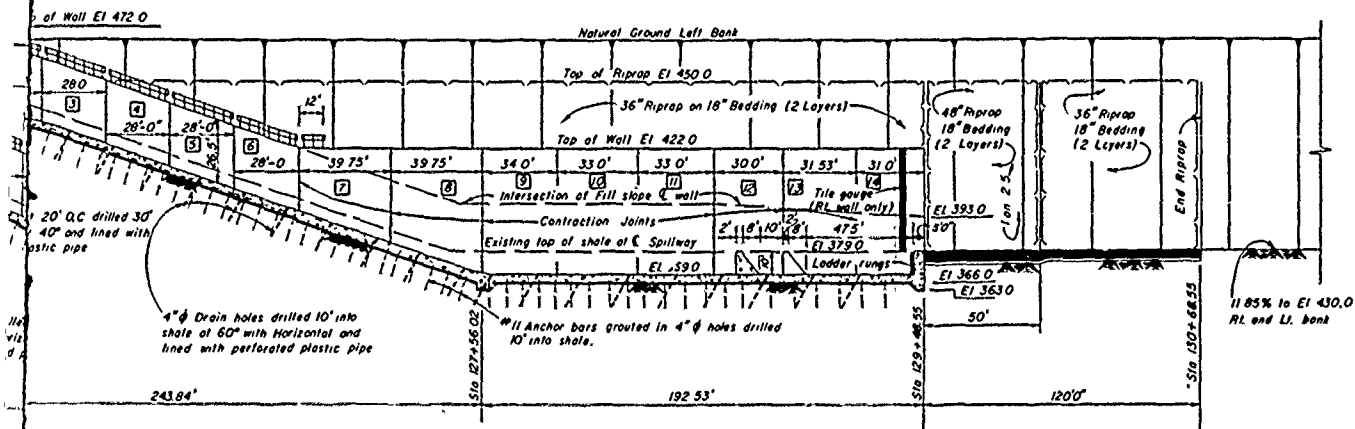 of Wall El 472 0
Natural Ground Left Bank
Top of Riprap El 450 0
28.0
3
4
28'-0"
28'-0
5
26.5'
6
28'-0
12'
36" Riprap on 18" Bedding (2 Layers)
48" Riprap
18" Bedding
(2 Layers)
36" Riprap
18" Bedding
(2 Layers)
End Riprap
1 on 2 5
Top of Wall El 422 0
39 75'
39 75'
34 0'
33 0'
33 0'
30 0'
31 53'
31 0'
7
8
9
10
11
12
13
14
Intersection of Fill slope ℄ wall
Tile gauge
(Rt. wall only)
Contraction Joints
El 393 0
Existing top of shale at ℄ Spillway
2'
8'
10'
8'
47 5'
El 379 0
Ladder rungs
El 366 0
El 363 0
50'
20' O.C drilled 30'
40° and lined with
astic pipe
4" ϕ Drain holes drilled 10' into
shale at 60° with Horizontal and
lined with perforated plastic pipe
#11 Anchor bars grouted in 4" ϕ holes drilled
10' into shale.
11 85% to El 430.0
Rt. and Lt. bank
Sta 127+56.02
Sta 129+48.55
Sta 130+68.55
243.84'
192 53'
120'0"